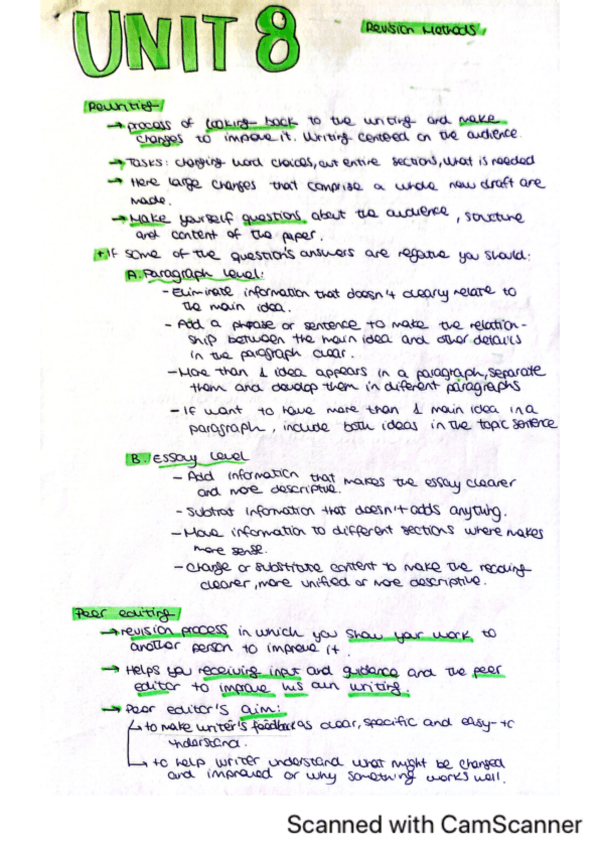 UNIT 8
Revision Methods
Rewriting
→ process of looking back to the writing and make
changes to improve it. Writing centered on the audience.
→ Tasks: changing word choices, cut entire sections, what is needed
→ Here large changes that comprise a whole new draft are
made.
→ Make yourself questions about the audience, structure
and content of the paper.
+ If some of the question's answers are negative you should:
A. Paragraph level:
- Eliminate information that doesn't clearly relate to
the main idea.
- Add a phrase or sentence to make the relation-
ship between the main idea and other details
in the paragraph clear.
- More than 1 idea appears in a paragraph, separate
them and develop them in different paragraphs
- If want to have more than 1 main idea in a
paragraph, include both ideas in the topic sentence
B. Essay level
- Add information that makes the essay clearer
and more descriptive.
- Subtrat information that doesn't adds anything.
- Move information to different sections where makes
more sense.
- Change or substitute content to make the reading
clearer, more unified or more descriptive.
Peer editing
→ revision process in which you show your work to
another person to improve it.
→ Helps you receiving input and guidance and the peer
editor to improve his own writing.
→ Peer editor's aim:
↳ to make writer's feedback as clear, specific and easy-to
understand.
↳ to help writer understand what might be changed
and improved or why something works well.
Scanned with CamScanner